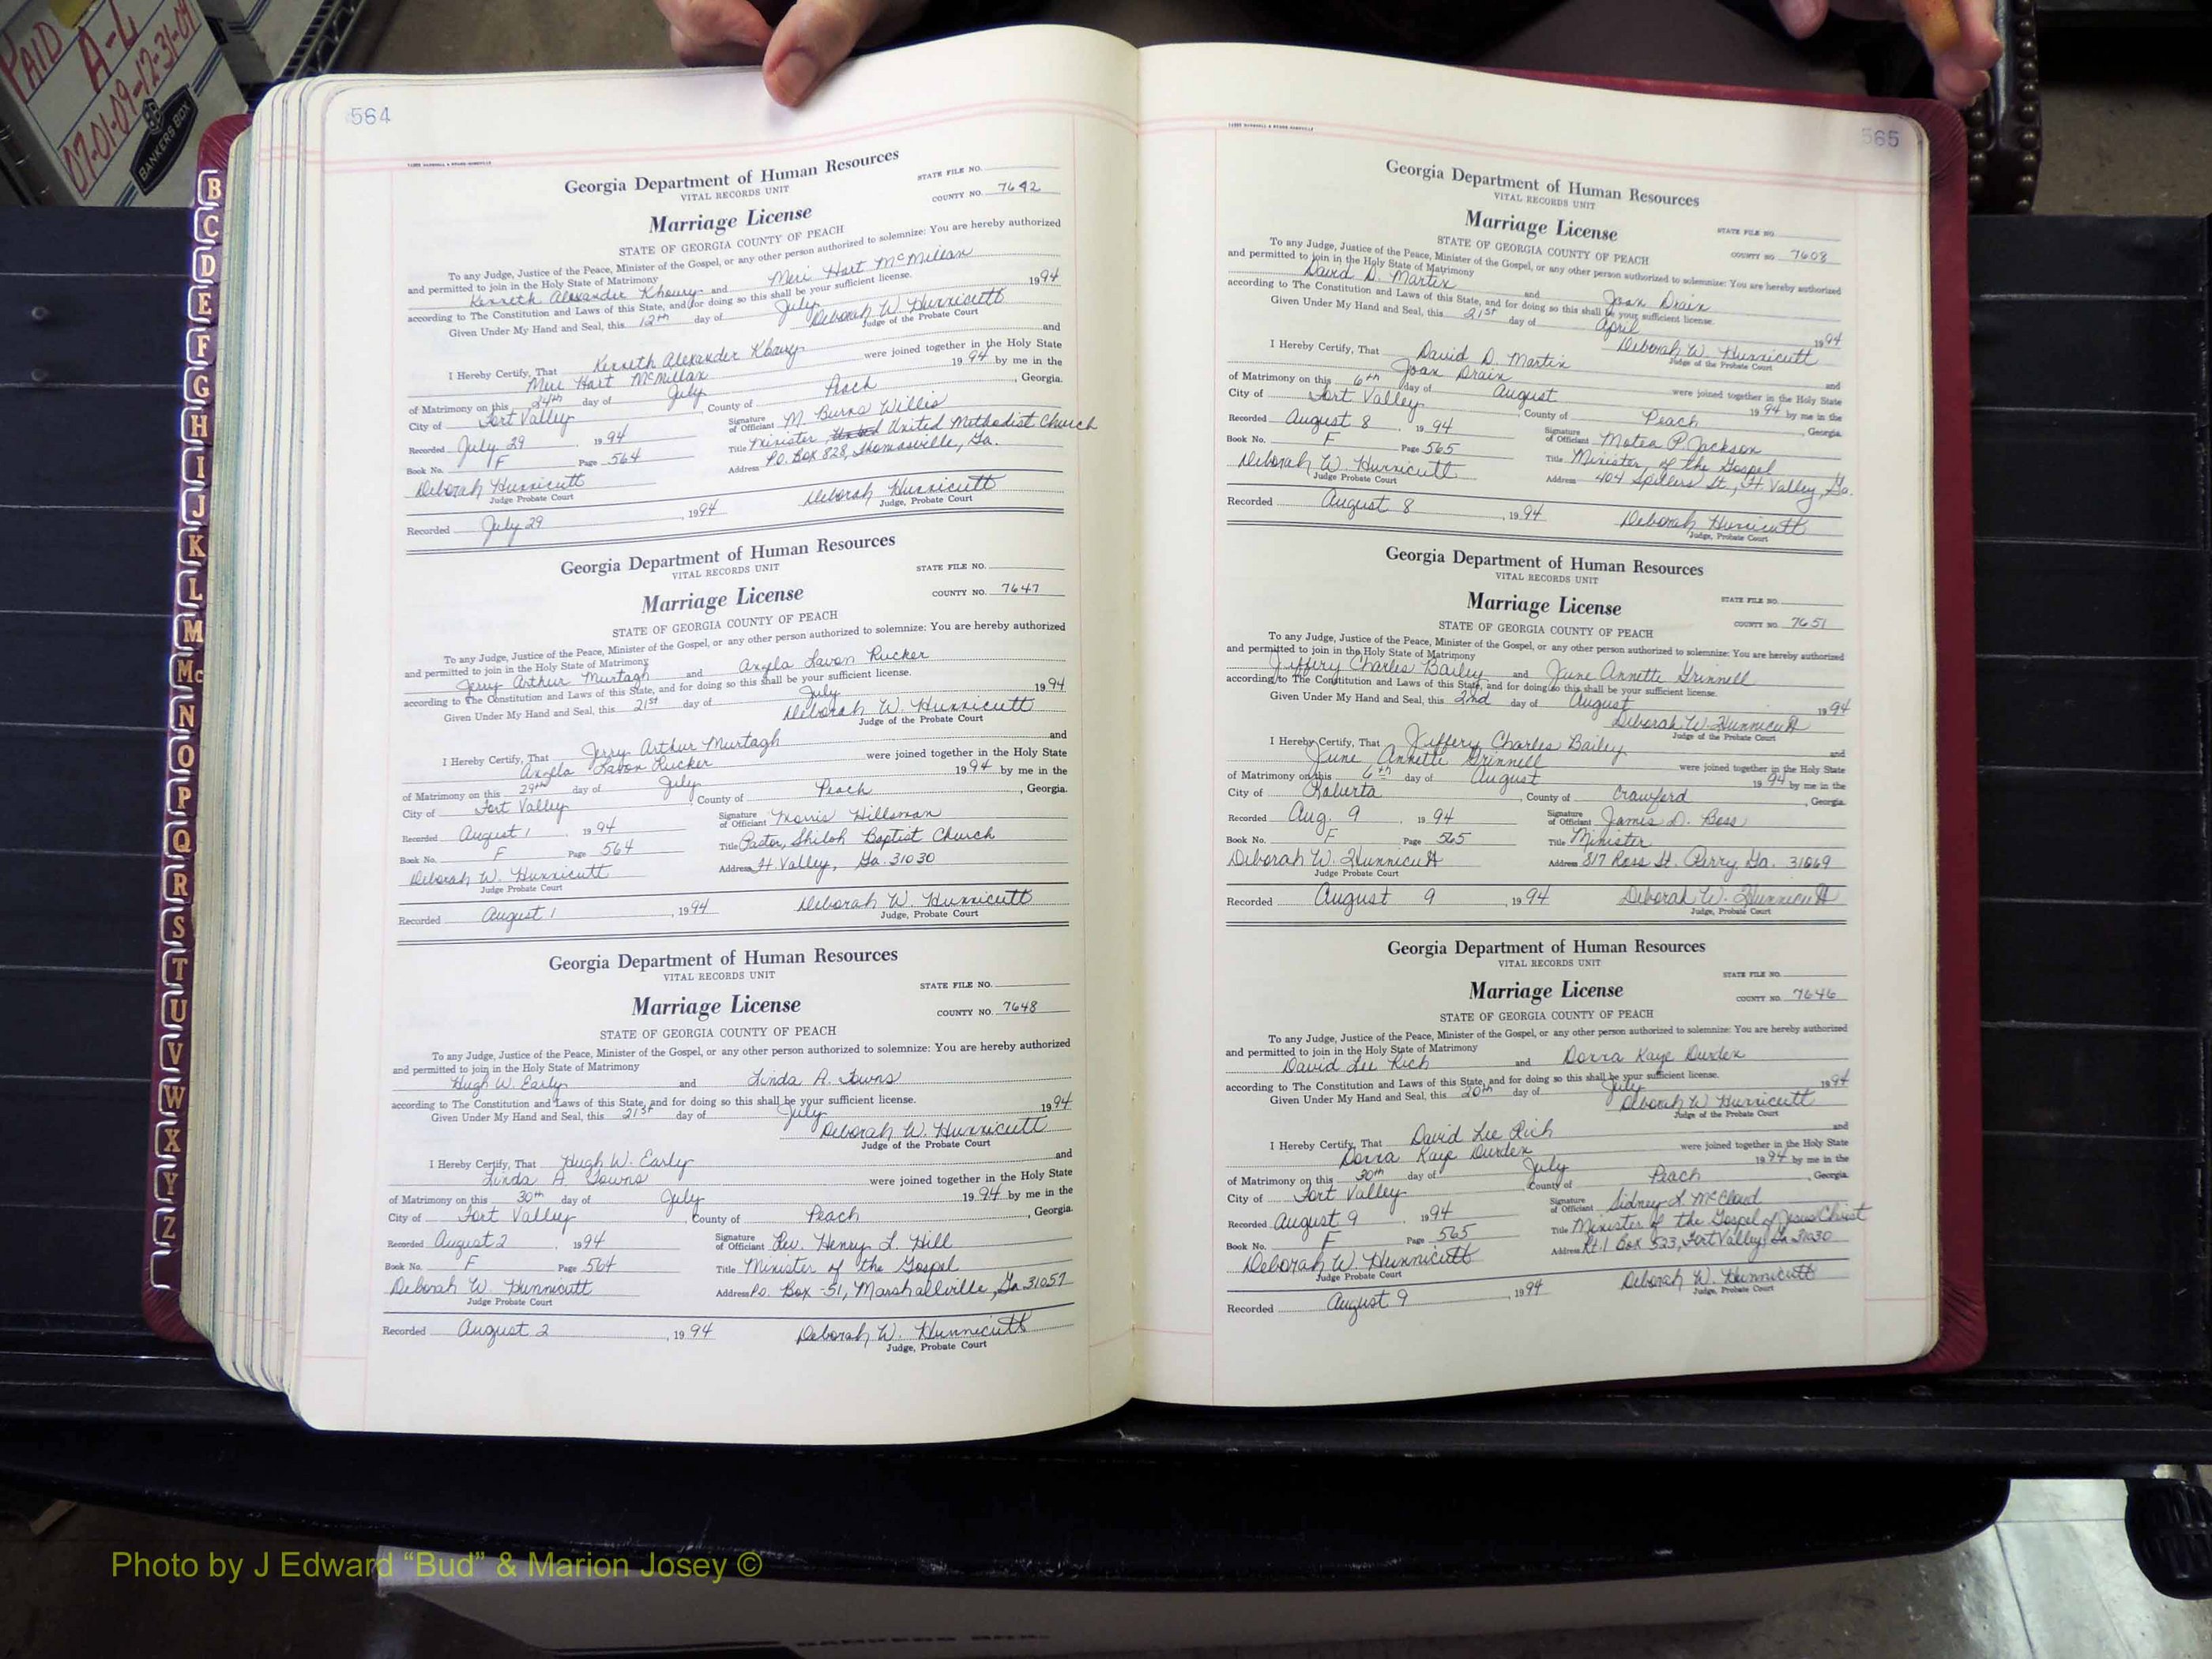 PAID
A-L
07-01-09-12-31-09
BANKERS BOX
B
C
D
E
F
G
H
I
J
K
L
M
Mc
N
O
P
Q
R
S
T
U
V
W
X
Y
Z
564
Georgia Department of Human Resources
VITAL RECORDS UNIT
STATE FILE NO.
COUNTY NO. 7642
Marriage License
STATE OF GEORGIA COUNTY OF PEACH
To any Judge, Justice of the Peace, Minister of the Gospel, or any other person authorized to solemnize: You are hereby authorized
and permitted to join in the Holy State of Matrimony
Kenneth Alexander Khoury and Meri Hart McMillan
according to The Constitution and Laws of this State, and for doing so this shall be your sufficient license.
Given Under My Hand and Seal, this 12th day of July 1994
Deborah W. Hunnicutt
Judge of the Probate Court
I Hereby Certify, That Kenneth Alexander Khoury and
Meri Hart McMillan were joined together in the Holy State
of Matrimony on this 24th day of July 1994 by me in the
City of Fort Valley, County of Peach, Georgia.
Recorded July 29, 1994 Signature of Officiant M. Burns Willis
Book No. F Page 564 Title Minister, United Methodist Church
Deborah Hunnicutt Address P.O. Box 828, Thomasville, Ga.
Judge Probate Court
Recorded July 29, 1994 Deborah Hunnicutt
Judge, Probate Court
Georgia Department of Human Resources
VITAL RECORDS UNIT
STATE FILE NO.
COUNTY NO. 7647
Marriage License
STATE OF GEORGIA COUNTY OF PEACH
To any Judge, Justice of the Peace, Minister of the Gospel, or any other person authorized to solemnize: You are hereby authorized
and permitted to join in the Holy State of Matrimony
Jerry Arthur Murtagh and Angela Lavon Rucker
according to The Constitution and Laws of this State, and for doing so this shall be your sufficient license.
Given Under My Hand and Seal, this 21st day of July 1994
Deborah W. Hunnicutt
Judge of the Probate Court
I Hereby Certify, That Jerry Arthur Murtagh and
Angela Lavon Rucker were joined together in the Holy State
of Matrimony on this 29th day of July 1994 by me in the
City of Fort Valley, County of Peach, Georgia.
Recorded August 1, 1994 Signature of Officiant Morris Hillsman
Book No. F Page 564 Title Pastor, Shiloh Baptist Church
Deborah W. Hunnicutt Address Ft Valley, Ga. 31030
Judge Probate Court
Recorded August 1, 1994 Deborah W. Hunnicutt
Judge, Probate Court
Georgia Department of Human Resources
VITAL RECORDS UNIT
STATE FILE NO.
COUNTY NO. 7648
Marriage License
STATE OF GEORGIA COUNTY OF PEACH
To any Judge, Justice of the Peace, Minister of the Gospel, or any other person authorized to solemnize: You are hereby authorized
and permitted to join in the Holy State of Matrimony
Hugh W. Early and Linda A. Towns
according to The Constitution and Laws of this State, and for doing so this shall be your sufficient license.
Given Under My Hand and Seal, this 21st day of July 1994
Deborah W. Hunnicutt
Judge of the Probate Court
I Hereby Certify, That Hugh W. Early and
Linda A. Towns were joined together in the Holy State
of Matrimony on this 30th day of July 1994 by me in the
City of Fort Valley, County of Peach, Georgia.
Recorded August 2, 1994 Signature of Officiant Rev. Henry L. Hill
Book No. F Page 564 Title Minister of the Gospel
Deborah W. Hunnicutt Address P.o. Box -51, Marshallville, Ga 31057
Judge Probate Court
Recorded August 2, 1994 Deborah W. Hunnicutt
Judge, Probate Court
565
Georgia Department of Human Resources
VITAL RECORDS UNIT
Marriage License
STATE FILE NO.
STATE OF GEORGIA COUNTY OF PEACH
COUNTY NO. 7608
To any Judge, Justice of the Peace, Minister of the Gospel, or any other person authorized to solemnize: You are hereby authorized
and permitted to join in the Holy State of Matrimony
David D. Martin and Joan Drain
according to The Constitution and Laws of this State, and for doing so this shall be your sufficient license.
Given Under My Hand and Seal, this 21st day of April 1994
Deborah W. Hunnicutt
Judge of the Probate Court
I Hereby Certify, That David D. Martin and
Joan Drain were joined together in the Holy State
of Matrimony on this 6th day of August 1994 by me in the
City of Fort Valley, County of Peach, Georgia.
Recorded August 8, 1994 Signature of Officiant Motea P. Jackson
Book No. F Page 565 Title Minister of the Gospel
Deborah W. Hunnicutt Address 404 Spillers St., Ft. Valley, Ga.
Judge Probate Court
Recorded August 8, 1994 Deborah Hunnicutt
Judge, Probate Court
Georgia Department of Human Resources
VITAL RECORDS UNIT
Marriage License
STATE FILE NO.
STATE OF GEORGIA COUNTY OF PEACH
COUNTY NO. 7651
To any Judge, Justice of the Peace, Minister of the Gospel, or any other person authorized to solemnize: You are hereby authorized
and permitted to join in the Holy State of Matrimony
Jeffery Charles Bailey and June Annette Grinnell
according to The Constitution and Laws of this State, and for doing so this shall be your sufficient license.
Given Under My Hand and Seal, this 2nd day of August 1994
Deborah W. Hunnicutt
Judge of the Probate Court
I Hereby Certify, That Jeffery Charles Bailey and
June Annette Grinnell were joined together in the Holy State
of Matrimony on this 6th day of August 1994 by me in the
City of Roberta, County of Crawford, Georgia.
Recorded Aug. 9, 1994 Signature of Officiant James D. Bess
Book No. F Page 565 Title Minister
Deborah W. Hunnicutt Address 817 Ross St. Perry, Ga. 31069
Judge Probate Court
Recorded August 9, 1994 Deborah W. Hunnicutt
Judge, Probate Court
Georgia Department of Human Resources
VITAL RECORDS UNIT
STATE FILE NO.
Marriage License
COUNTY NO. 7646
STATE OF GEORGIA COUNTY OF PEACH
To any Judge, Justice of the Peace, Minister of the Gospel, or any other person authorized to solemnize: You are hereby authorized
and permitted to join in the Holy State of Matrimony
David Lee Rich and Donna Kaye Durden
according to The Constitution and Laws of this State, and for doing so this shall be your sufficient license.
Given Under My Hand and Seal, this 20th day of July 1994
Deborah W. Hunnicutt
Judge of the Probate Court
I Hereby Certify, That David Lee Rich and
Donna Kaye Durden were joined together in the Holy State
of Matrimony on this 30th day of July 1994 by me in the
City of Fort Valley County of Peach, Georgia.
Recorded August 9, 1994 Signature of Officiant Sidney L McCloud
Book No. F Page 565 Title Minister of the Gospel of Jesus Christ
Deborah W. Hunnicutt Address Rt. 1 Box 523, Fort Valley, Ga 31030
Judge Probate Court
Recorded August 9, 1994 Deborah W. Hunnicutt
Judge, Probate Court
Photo by J Edward “Bud” & Marion Josey ©